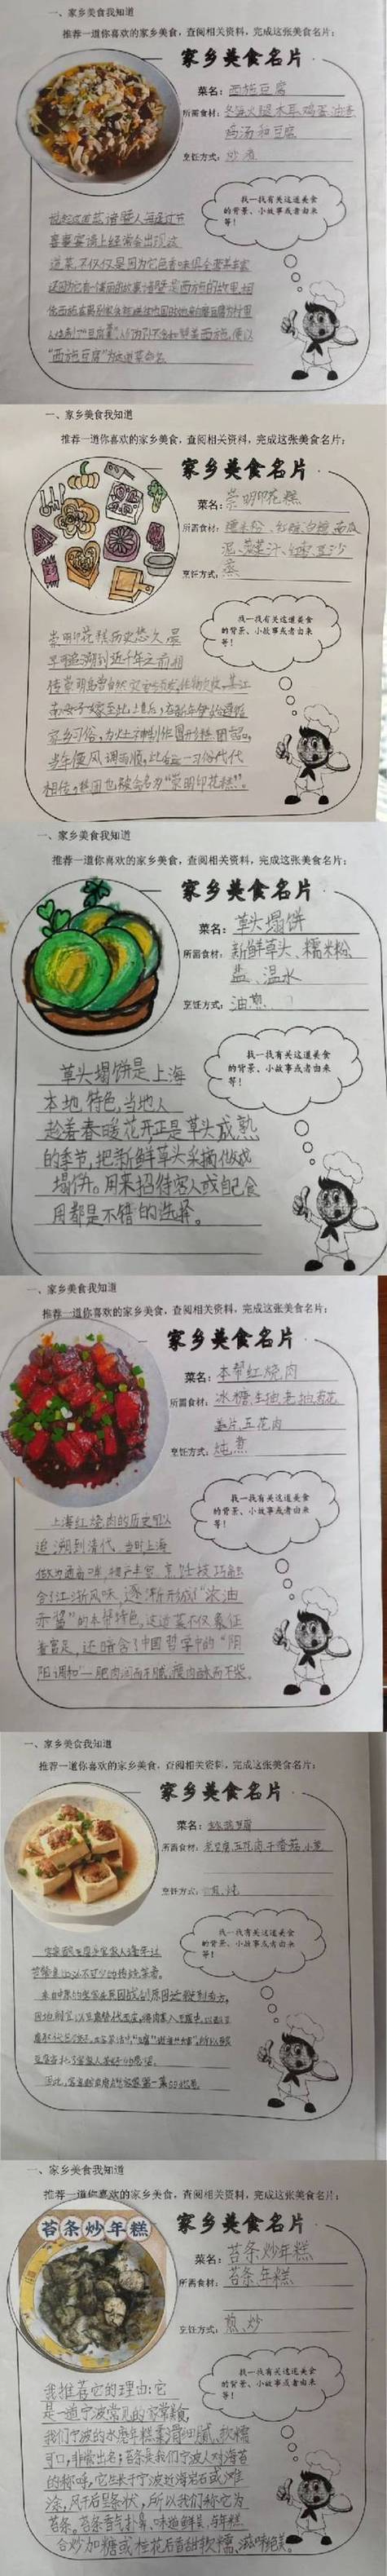 一、家乡美食我知道
推荐一道你喜欢的家乡美食，查阅相关资料，完成这张美食名片：
家乡美食名片
菜名：西施豆腐
所需食材：冬笋火腿木耳鸡蛋油渣
鸡汤和豆腐
烹饪方式：炒煮
找一找有关这道美食
的背景、小故事或者由来
等！
喜宴宴请上经常会出现这
道菜，不仅仅是因为它色香味俱全营养丰富
"西施豆腐"为这道菜命名
一、家乡美食我知道
推荐一道你喜欢的家乡美食，查阅相关资料，完成这张美食名片：
家乡美食名片
菜名：崇明印花糕
所需食材：糯米粉、红糖、白糖、南瓜
泥、菠菜汁、红枣、豆沙
烹饪方式：蒸
找一找有关这道美食
的背景、小故事或者由来
等！
崇明印花糕历史悠久，最
早可追溯到近千年之前，相
家乡习俗，为灶神制作圆形糕团，
当年便风调雨顺，此后这一习俗代代
相传，糕团也被命名为"崇明印花糕"。
一、家乡美食我知道
推荐一道你喜欢的家乡美食，查阅相关资料，完成这张美食名片：
家乡美食名片
菜名：草头塌饼
所需食材：新鲜草头、糯米粉、
盐、温水
烹饪方式：油煎
找一找有关这道美食
的背景、小故事或者由来
等！
草头塌饼是上海
本地特色，当地人
趁着春暖花开正是草头成熟
的季节，把新鲜草头采摘做成
塌饼。用来招待客人或自己食
用都是不错的选择。
一、家乡美食我知道
推荐一道你喜欢的家乡美食，查阅相关资料，完成这张美食名片：
家乡美食名片
菜名：本帮红烧肉
所需食材：冰糖、生抽、老抽、葱花、
姜片、五花肉
烹饪方式：炖煮
找一找有关这道美食
的背景、小故事或者由来
等！
上海红烧肉的历史可以
追溯到清代，当时上海
做为通商口岸，物产丰富，烹饪技巧融
合了江浙风味，逐渐形成了"浓油
赤酱"的本帮特色，这道菜不仅象征
着富足，还暗含了中国哲学中的"阴
阳调和"—肥肉润而不腻，瘦肉酥而不柴。
一、家乡美食我知道
推荐一道你喜欢的家乡美食，查阅相关资料，完成这张美食名片：
家乡美食名片
菜名：
所需食材：老豆腐、五花肉、干香菇、小葱
烹饪方式：煎、炖
找一找有关这道美食
的背景、小故事或者由来
等！
客家酿豆腐是客家人逢年过
节餐桌上必不可少的传统菜肴。
一、家乡美食我知道
推荐一道你喜欢的家乡美食，查阅相关资料，完成这张美食名片：
苔条炒年糕
家乡美食名片
菜名：苔条炒年糕
所需食材：苔条、年糕
烹饪方式：煎、炒
找一找有关这道美食
的背景、小故事或者由来
等！
我推荐它的理由：它
是一道宁波常见的家常美食，
我们宁波的水磨年糕柔滑细腻、软糯
可口，非常出名；苔条是我们宁波人对海苔
的称呼，它生长于宁波近海岩石或滩
涂，风干后呈条状，所以我们称它为
苔条。苔条香气扑鼻、味道鲜美，与年糕
合炒加糖或桂花后香甜软糯、滋味绝美。